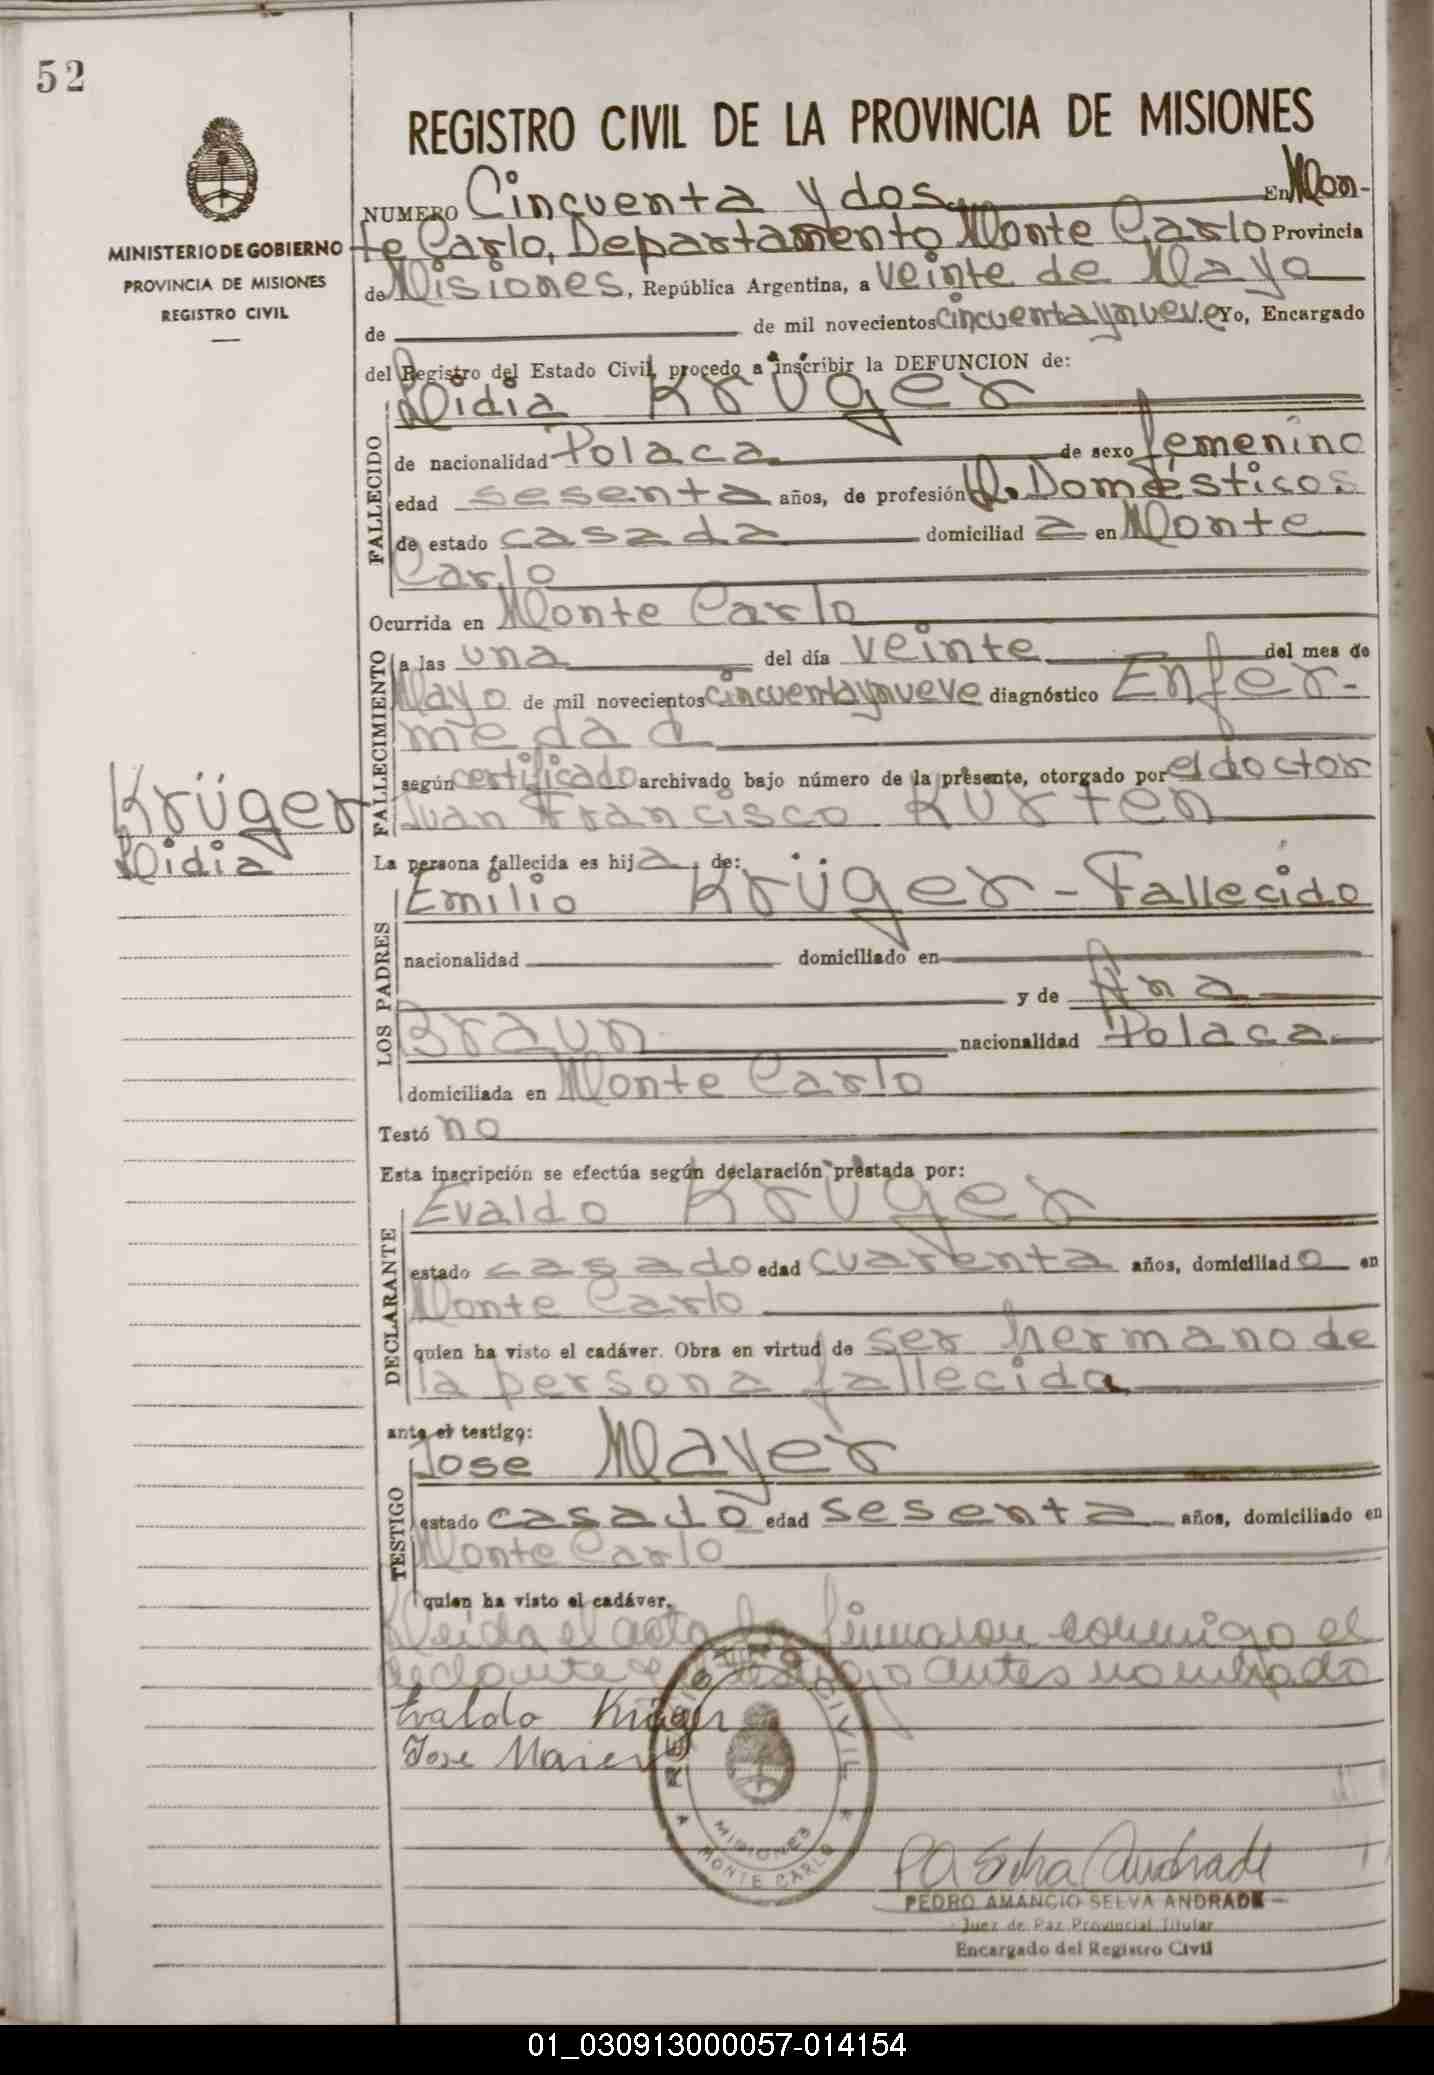 52
REGISTRO CIVIL DE LA PROVINCIA DE MISIONES
MINISTERIO DE GOBIERNO
PROVINCIA DE MISIONES
REGISTRO CIVIL
NUMERO Cincuenta y dos En Mon-
te Carlo, Departamento Monte Carlo Provincia
de Misiones, República Argentina, a veinte de Mayo
de de mil novecientos cincuenta y nueve. Yo, Encargado
del Registro del Estado Civil, procedo a inscribir la DEFUNCION de:
Lidia Krüger
FALLECIDO
de nacionalidad Polaca de sexo femenino
edad sesenta años, de profesión Q. Domésticos
de estado casada domiciliad a en Monte
Carlo
Ocurrida en Monte Carlo
FALLECIMIENTO
a las una del día veinte del mes de
Mayo de mil novecientos cincuenta y nueve diagnóstico Enfer-
medad
según certificado archivado bajo número de la presente, otorgado por el doctor
Juan Francisco Kurten
Krüger
Lidia
La persona fallecida es hij a, de:
Emilio Krüger - Fallecido
LOS PADRES
nacionalidad domiciliado en
y de Ana
Braun nacionalidad Polaca
domiciliada en Monte Carlo
Testó no
Esta inscripción se efectúa según declaración prestada por:
Evaldo Krüger
DECLARANTE
estado casado edad cuarenta años, domiciliad o en
Monte Carlo
quien ha visto el cadáver. Obra en virtud de ser hermano de
la persona fallecida
ante el testigo:
Jose Mayer
TESTIGO
estado casado edad sesenta años, domiciliado en
Monte Carlo
quien ha visto el cadáver.
Leida el acta la firmaron conmigo el
declarante y el testigo antes nombrado
Evaldo Krüger
Jose Maier
REGISTRO CIVIL
MISIONES
MONTE CARLO
PA Selva Andrade
PEDRO AMANCIO SELVA ANDRADE
Juez de Paz Provincial Titular
Encargado del Registro Civil
01_030913000057-014154